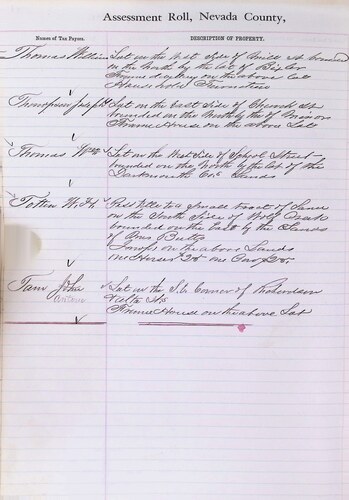 Assessment Roll, Nevada County,
Names of Tax Payers. DESCRIPTION OF PROPERTY.
Thomas William Lot on the West Side of Mill St bounded
on the North by the lot of
Frame on the above Lot
Household Furniture
Thompson Joseph Lot on the East Side of Church St
bounded on the North by the of
Frame House on the above Lot
Thomas Wm Lot on the West Side of School Street
bounded on the North by the lot of the
Lands
Totten W. H. Poss Title to a Small tract of Land
on the South Side of Wolf Creek
bounded on the East by the Lands
of
on the above Lands
one Horse $25 one Cow $25
Tam John Lot on the S.E. Corner of Richardson
Sts
Frame House on the above Lot